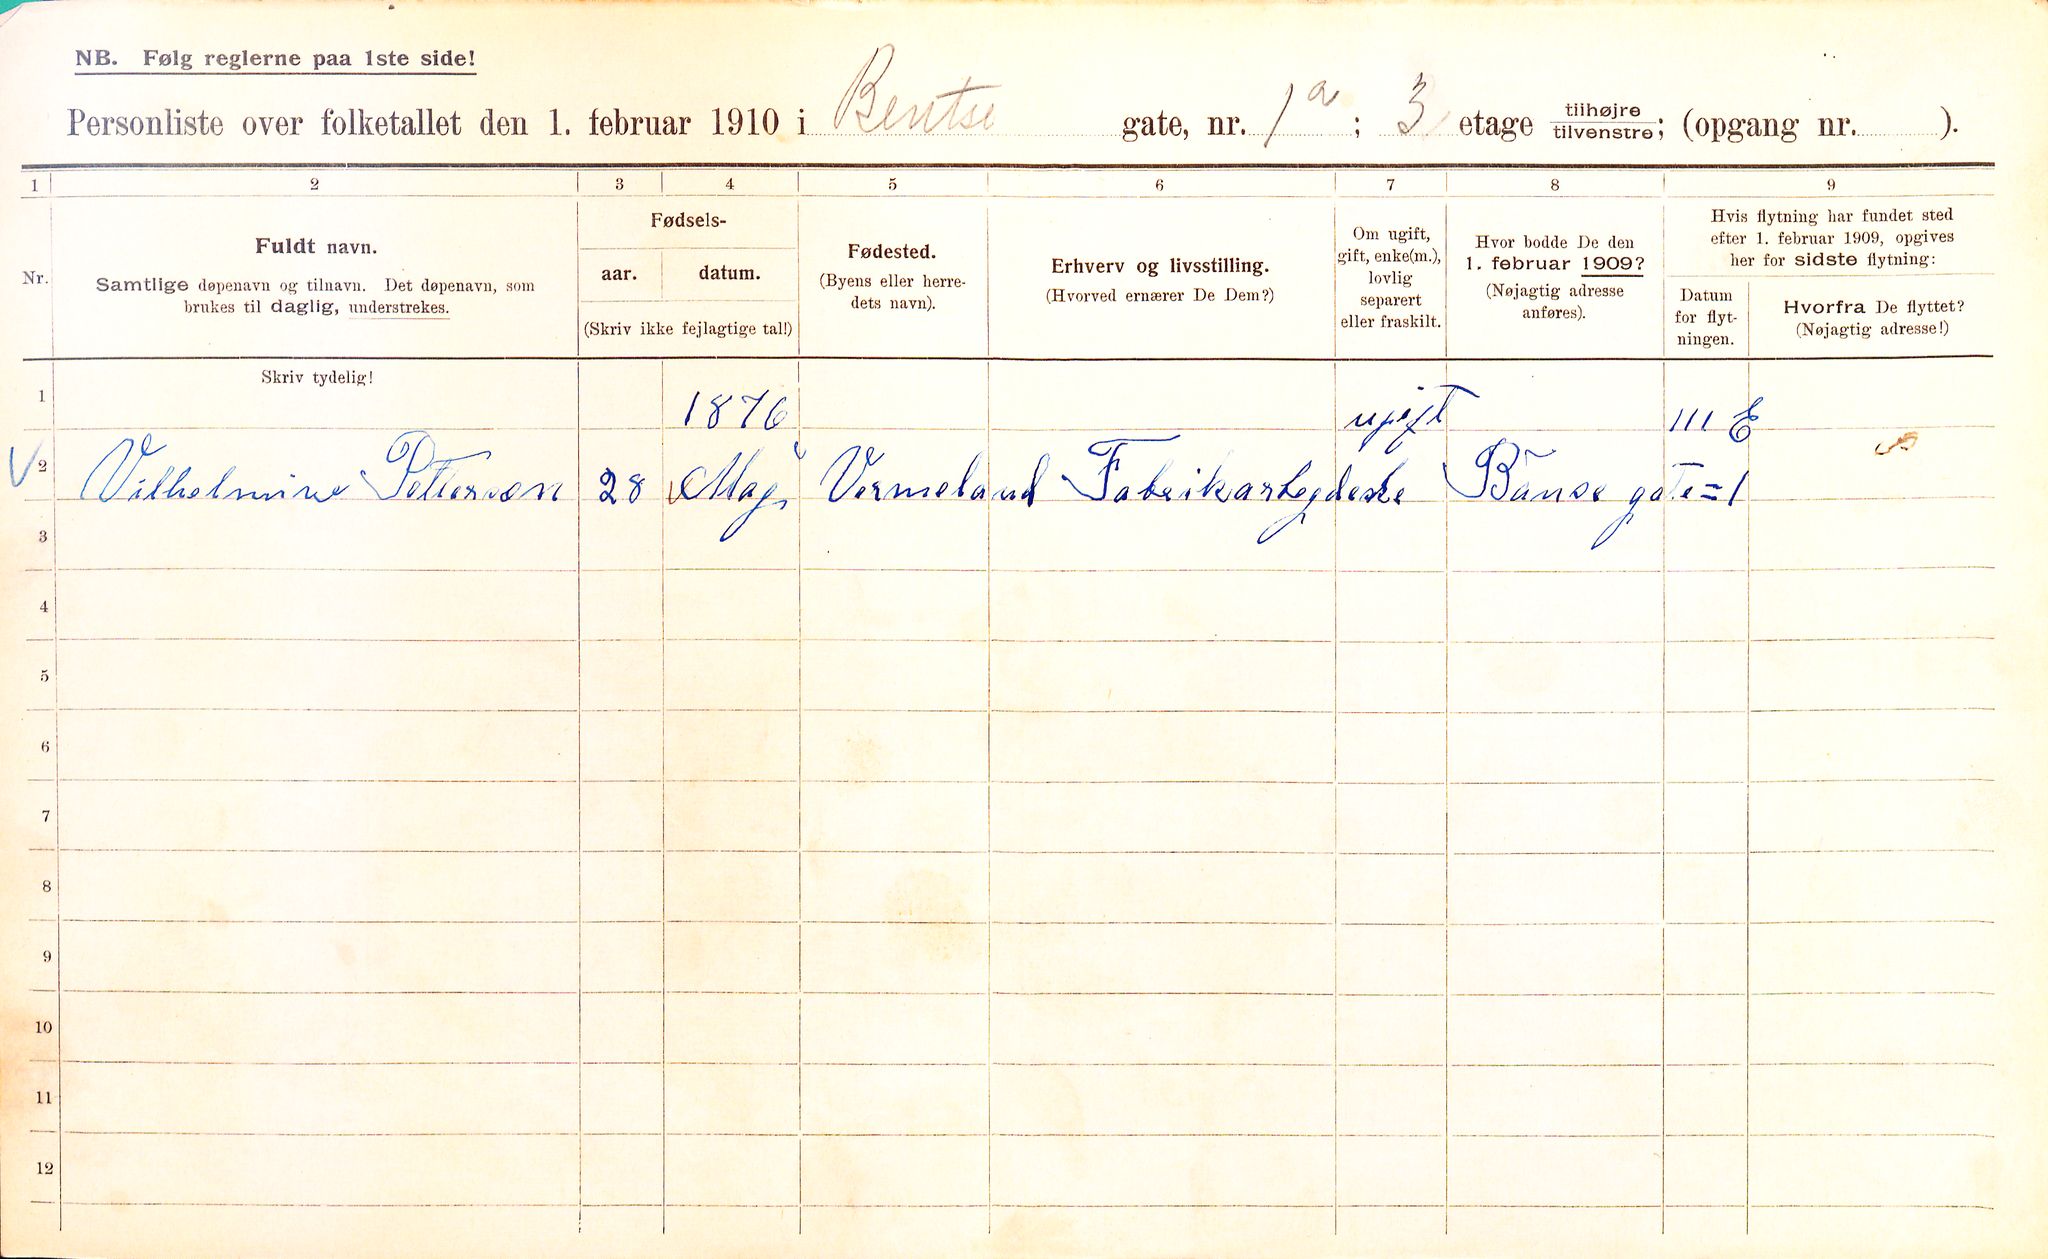 NB. Følg reglerne paa 1ste side!
Personliste over folketallet den 1. februar 1910 i Bentse gate, nr. 1a ; 3 etage tilhøjre tilvenstre; (opgang nr. ).
1 2 3 4 5 6 7 8 9
Nr.
Fuldt navn.
Samtlige døpenavn og tilnavn. Det døpenavn, som
brukes til daglig, understrekes.
Fødsels-
aar. datum.
(Skriv ikke fejlagtige tal!)
Fødested.
(Byens eller herre-
dets navn).
Erhverv og livsstilling.
(Hvorved ernærer De Dem?)
Om ugift,
gift, enke(m.),
lovlig
separert
eller fraskilt.
Hvor bodde De den
1. februar 1909?
(Nøjagtig adresse
anføres).
Hvis flytning har fundet sted
efter 1. februar 1909, opgives
her for sidste flytning:
Datum
for flyt-
ningen.
Hvorfra De flyttet?
(Nøjagtig adresse!)
Skriv tydelig!
1 1876 ugift III E
2 Vilhelmine Petterson 28 Maj Vermeland Fabrikarbejdeske Bänse gate = 1
3
4
5
6
7
8
9
10
11
12